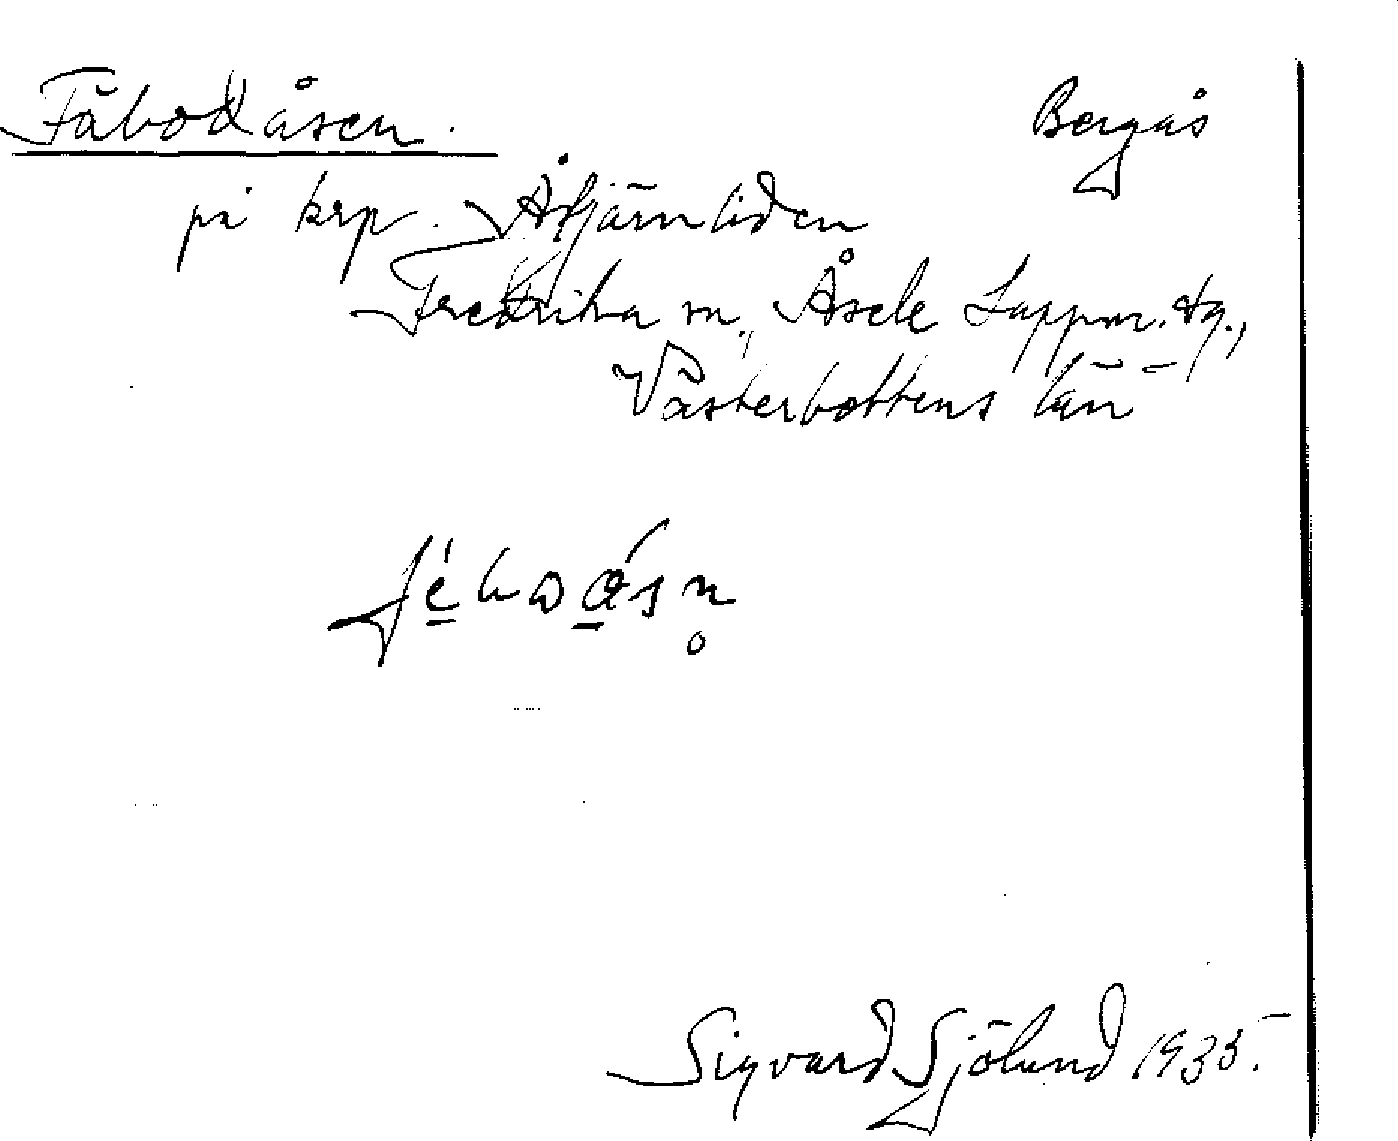 Fäbodåsen. Bergås
på krp. Åtjärnliden
Fredrika sn., Åsele Lappm. tg.,
Västerbottens län
Sigvard Sjölund 1935.